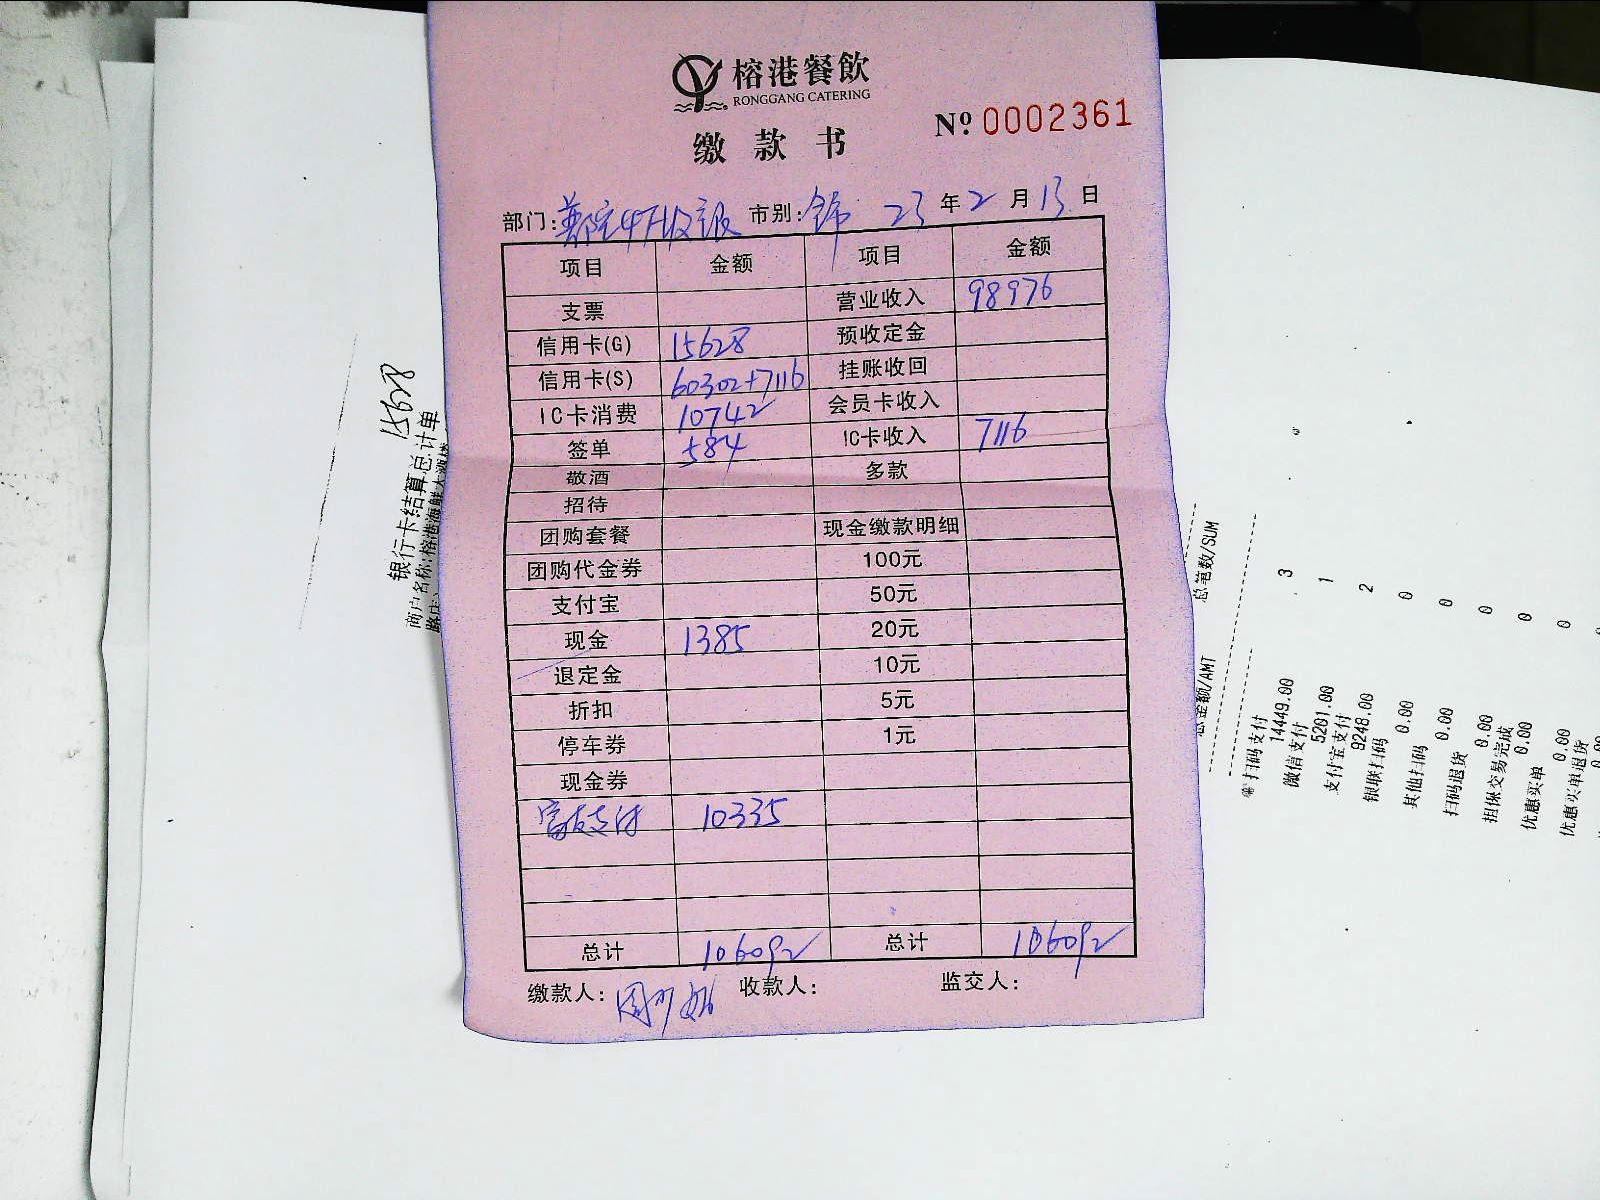 榕港餐飲
RONGGANG CATERING
缴款书
№ 0002361
部门: 市别: 23年2月13日
项目 金额 项目 金额
支票 营业收入 98976
信用卡(G) 15628 预收定金
信用卡(S) 60302+7116 挂账收回
IC卡消费 10742 会员卡收入
签单 584 IC卡收入 7116
敬酒 多款
招待
团购套餐 现金缴款明细
团购代金券 100元
支付宝 50元
现金 1385 20元
退定金 10元
折扣 5元
停车券 1元
现金券
富友支付 10335
总计 106092 总计 106092
缴款人: 收款人: 监交人:
15628
银行卡结算总计单
商户名称:榕港海鲜大酒楼
总金额/AMT 总笔数/SUM
扫码支付
14449.00 3
微信支付
5201.00 1
支付宝支付
9248.00 2
银联扫码
0.00 0
其他扫码
0.00 0
扫码退货
0.00 0
担保交易完成
0.00 0
优惠买单
0.00 0
优惠买单退货